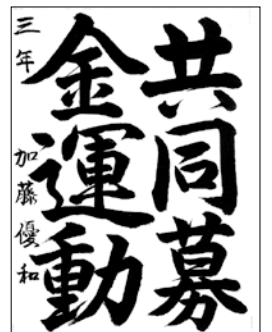 共同募
金運動
三年 加藤優和